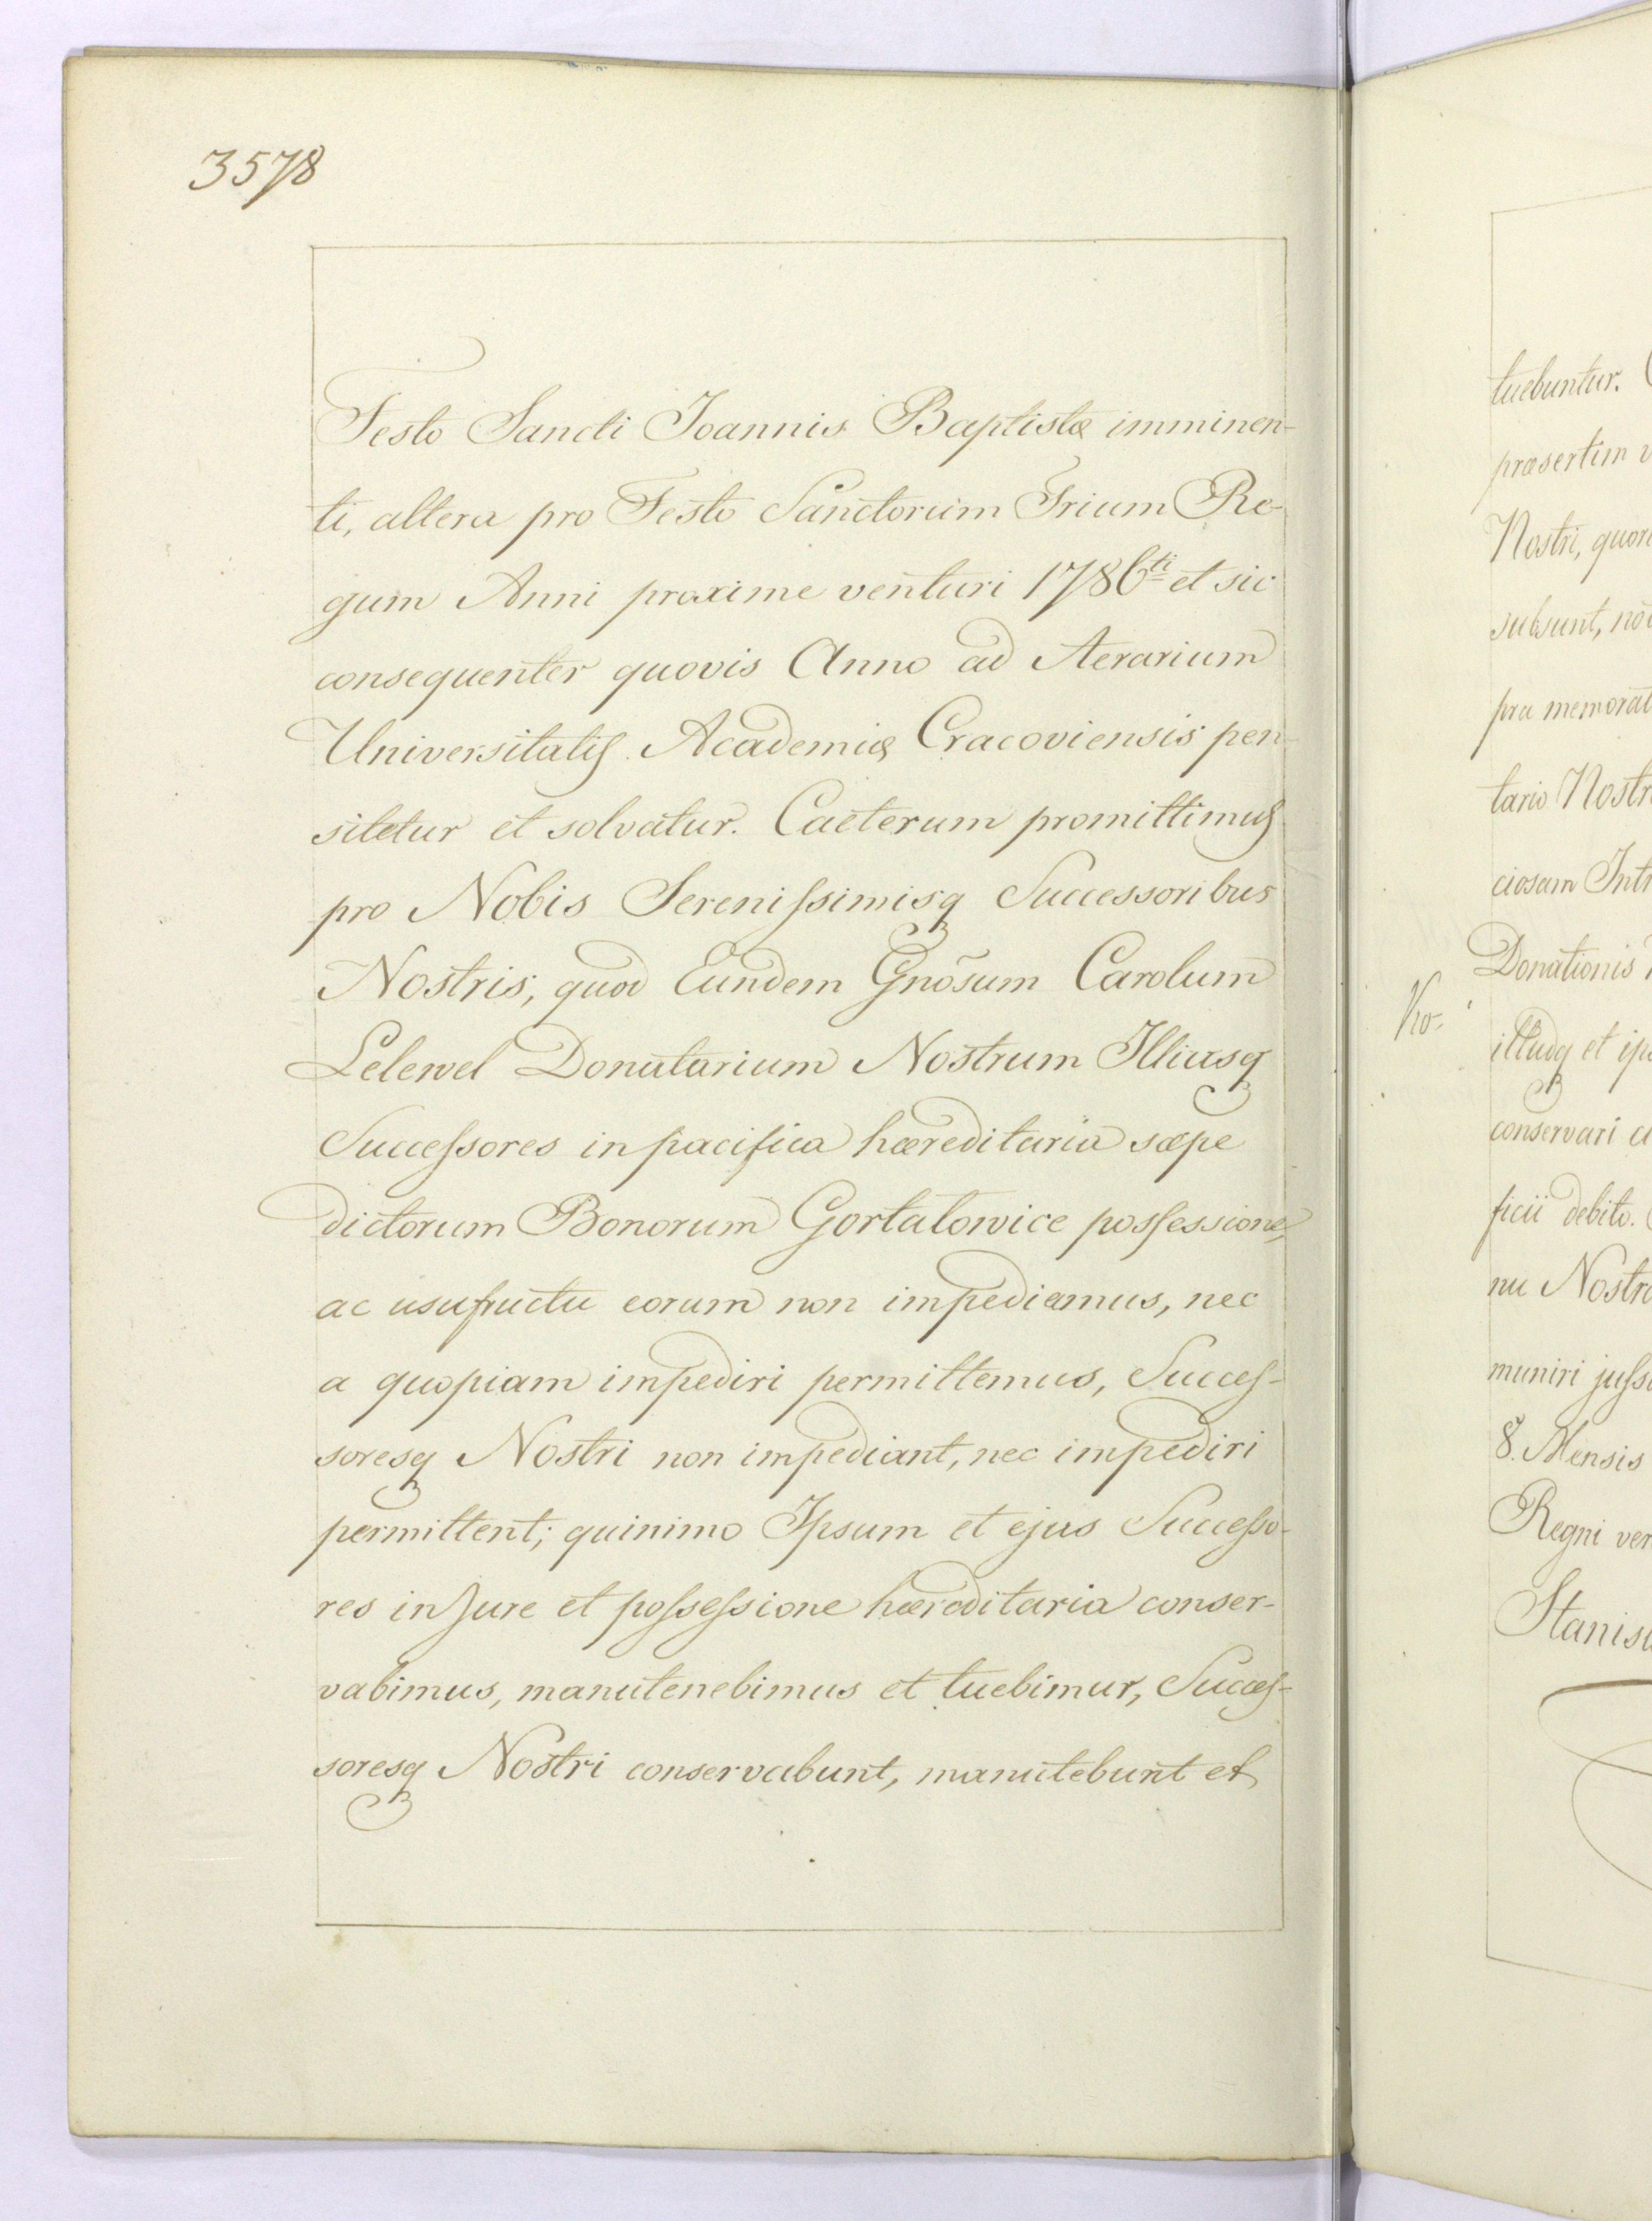 3578
Festo Sancti Joannis Baptistæ imminen-
ti, altera pro Festo Sanctorum Trium Re-
gum Anni proxime venturi 1786ti et sic
consequenter quovis Anno ad Aerarium
Universitatis Academiæ Cracoviensis pen-
sitetur et solvatur. Caeterum promittimus
pro Nobis Serenißimisq Successoribus
Nostris, quod Eundem Gnõsum Carolum
Lelewel Donatarium Nostrum Illiusq
Succeſsores in pacifica hæreditaria sæpe
dictorum Bonorum Gortatowice poſsessione,
ac usufructu eorum non impediemus, nec
a quopiam impediri permittemus, Succeſ-
soresq Nostri non impediant, nec impediri
permittent; quinimo Ipsum et ejus Succeſso-
res in Jure et poſseſsione hæreditaria conser-
vabimus, manutenebimus et tuebimur, Succeſ-
soresq Nostri conservabunt, manutebunt et
tuebuntur.
præsertim
Nostri,
subsunt,
tario
ciosam
Donationis
illudq et
conservari
ficii debito.
nu
muniri
8. Mensis
Regni